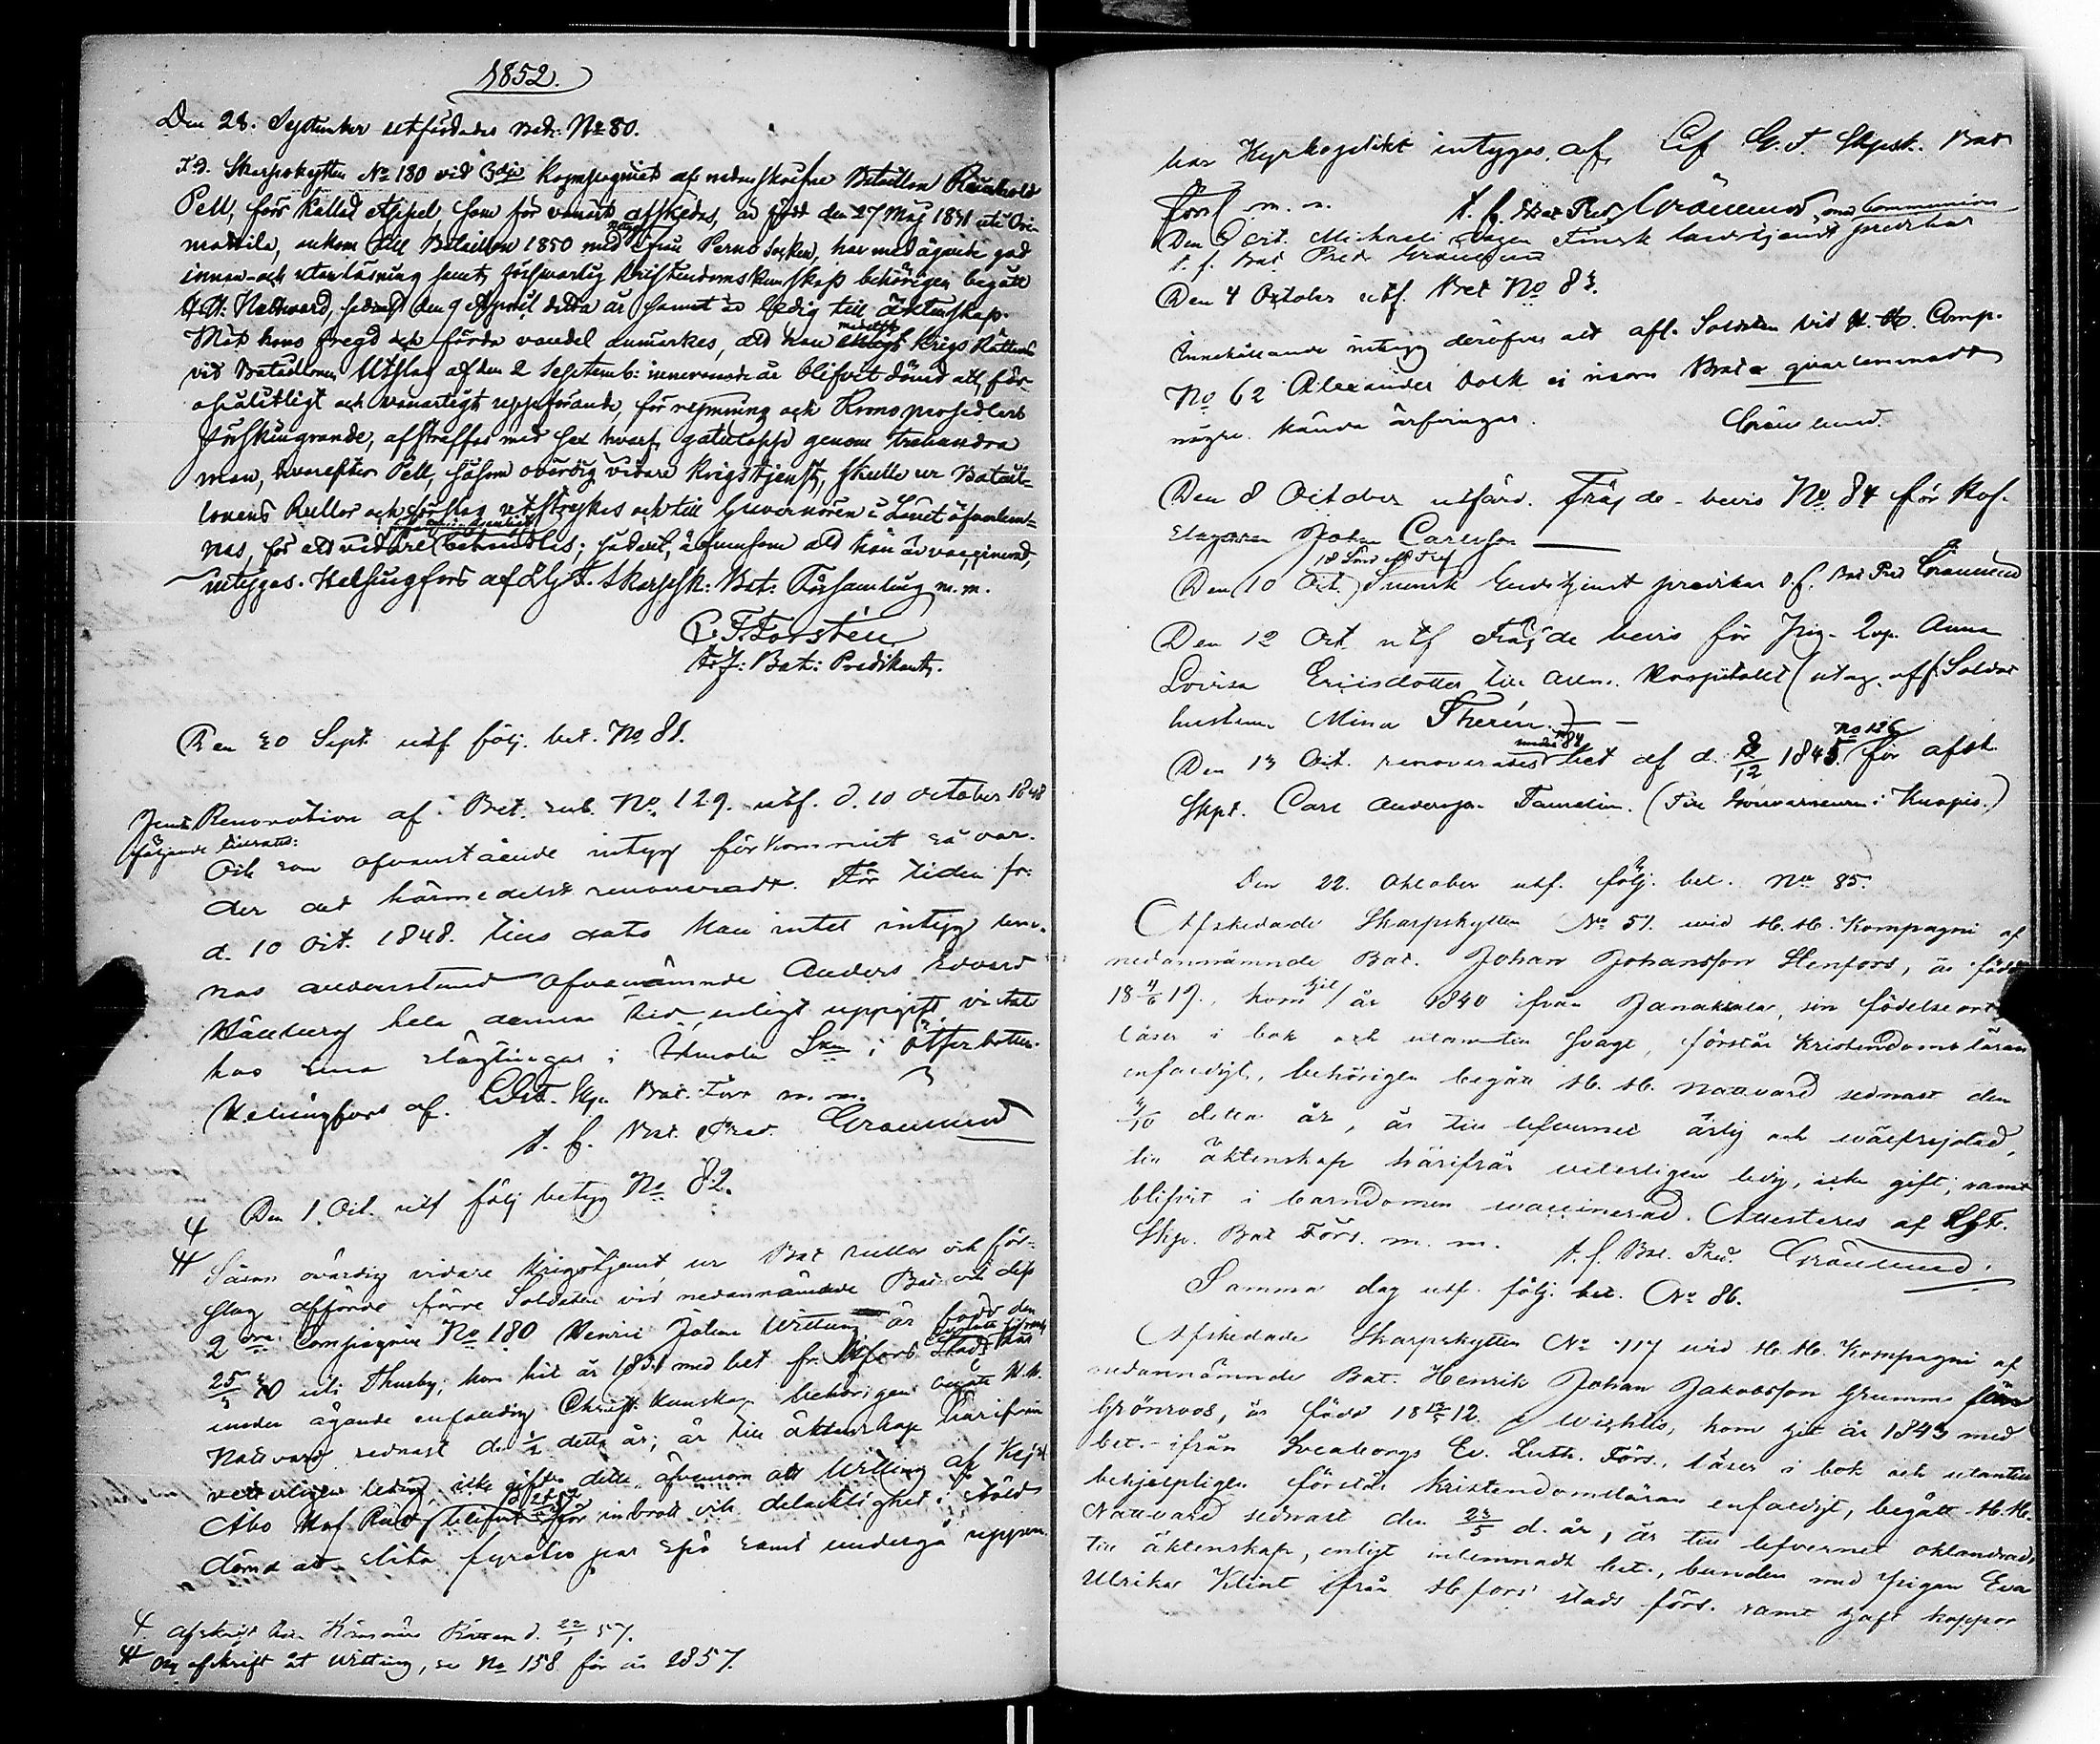 1852.
Den 28. September utfärdades Bet: No 80.
F.d. Skarpskytten No 180 vid 3dje Kompagniet af nedanskrefne Bataillon Reinhold
Pell, förr kallad Appel, som för vanart afskedas, är född den 27 Maj 1831 uti Ori-
mattila, ankom till Bataillon 1850 med betyg från Perno Socken, har med ägande god
innan- och utanläsning samt försvarlig kristendomskunskap behörigen begått
H.H. Nattvard, sednast den 9 April detta år samt är ledig till äktenskap.
Mot hans fregd och förda vandel anmärkes, att han medelst Krigs Rättens
vid Bataillonen Utslag af den 2 Septemb: innevarande år blifvit dömd att, för
oskickligt och vanartigt uppförande, för rymning och Krono persedlars
förskingrande, afstraffas med sex hvarf gatulopp genom trehundra
man, hvarefter Pell, såsom ovärdig vidare Krigstjenst, skulle ur Batail-
lonens Rullor och förslag utstrykas och till Guvernören i Länet öfverlem-
nas, för att vidare behandlas; hvilket, äfvensom att han är vaccinerad,
intygas. Helsingfors af L.G.F. Skarpsk: Bat: Församling m.m.
C. F. Forstén
t.f: Bat: Predikant.
Den 30 Sept. utf. följ. bet. No 81.
Jemte Renovation af Bet. sub. No 129. utf. d. 10 October 1848
följande
Och som ofvanstående intyg förkommit så var-
der det härmedelst renoveradt. För tiden fr.
d. 10 Oct. 1848. tills dato kan intet intyg lem-
nas ofvannämnde Anders Edvard
hela denna tid, enligt uppgift, vistats
hos sina slägtingar i Sn i Österbotten.
Helsingfors af. L.G.F. Skp. Bat. Förs. m.m.
t. f. Bat. Pred. Grönlund
Den 1. Oct. utf följ betyg No 82.
Såsom ovärdig vidare Krigstjenst, ur Bat rullor och för-
slag afförde förre Soldaten vid nedannämnde Bat. och dess
2dra Compagnie No 180 Henric Johan Witting är född den
25/5 30 uti Thusby, kom hit år 1851 med bet fr. H:fors Stads
under ägande enfaldig Christ. kunskap behörigen begått H.H.
Nattvard sednast d. detta år; är till äktenskap härifrån
veterligen ledig, icke gift; dette äfvensom att Witting af Kejs.
Åbo Hof Rätt blifvit för inbrott och delaktighet i stöld
dömd att slita fyratio par spö samt undergå uppen-
4. afskrift till Kämnärs Rätten d. 22/1 57.
# Om afskrift åt Witting, se No 158 för år 1857.
bar Kyrkoplikt intygas. af. Lif G. F. Skpsk. Bat
förs. m. m. t. f. Bat Pred Grönlund
Den 3 Oct. Michaeli Dagen Finsk Gudstjenst predikar
t. f. Bat Pred Grönlund
Den 4 October utf. Bet No 83.
Innehållande intyg deröfver att afl. Soldaten vid H. H. Comp.
No 62 Alexander Dolk ej inom Bat:n qvarlemnadt
några kända arfvingar. Grönlund.
Den 8 October utfärd. Fräjde-bevis No 84 för Hof-
slagaren Johan Carlsson
Den 10 Oct. Svensk Gudstjenst predikar t. f. Bat Pred Grönlund
Den 12 Oct utf Fräjde bevis för Pig. Anna
Lovisa Ericsdotter till Allm. Hospitalet (utaf afsk. Soldat
hustrun Mina Therén.)
Den 13 Oct. renoverades under No 84 bet af d. 8/12 1845. No 126 för afsk.
Skpt. Carl Andersson Famelin. (Till Gouverneuren i Kuopio.)
Den 22. Oktober utf. följ. bet. No 85.
Afskedade Skarpskytten No 51. wid H. H. Kompagni af
nedannämnde Bat. Johan Johansson Stenfors, är född
18 4/6 19., kom hit år 1840 ifrån Janakkala, sin födelseort,
läser i bok och utantill svagt, förstår kristendomsläran
enfaldigt, behörigen begått H. H. nattvard sednast den
4/10 detta år, är till lefvernet ärlig och wälfrejdad,
till äktenskap härifrån veterligen ledig, icke gift, samt
blifvit i barndomen waccinerad. Attesteras af L.G.F.
Skp. Bat Förs. m. m. t. f. Bat. Pred. Grönlund.
Samma dag utf. följ. bet. No 86.
Afskedade Skarpskytten No 117 wid H. H. Kompagni af
nedannämnde Bat. Henrik Johan Jakobsson Grumme
Grönroos, är född 18 12. i Wichtis, kom hit år 1843 med
bet. ifrån Sveaborgs Ev. Luth. Förs., läser i bok och utantill
behjelpligen förstår kristendomsläran enfaldigt, begått H. H.
Nattvard sednast den 23/5 d. år, är till lefvernet oklandrad,
till äktenskap, enligt inlemnadt bet., bunden med pigan Eva
Ulrika Klint ifrån H:fors stads förs. samt haft koppor